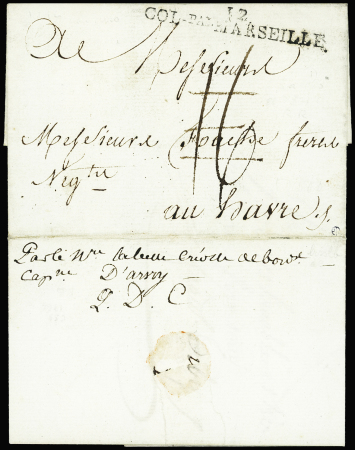 12
COL. PAR MARSEILLE
De Messieurs
16
Messieurs Foache freres
Negts
au havre
Par le Nre la belle Créolle de bordx
Capne D'arvoy
Q. D. C